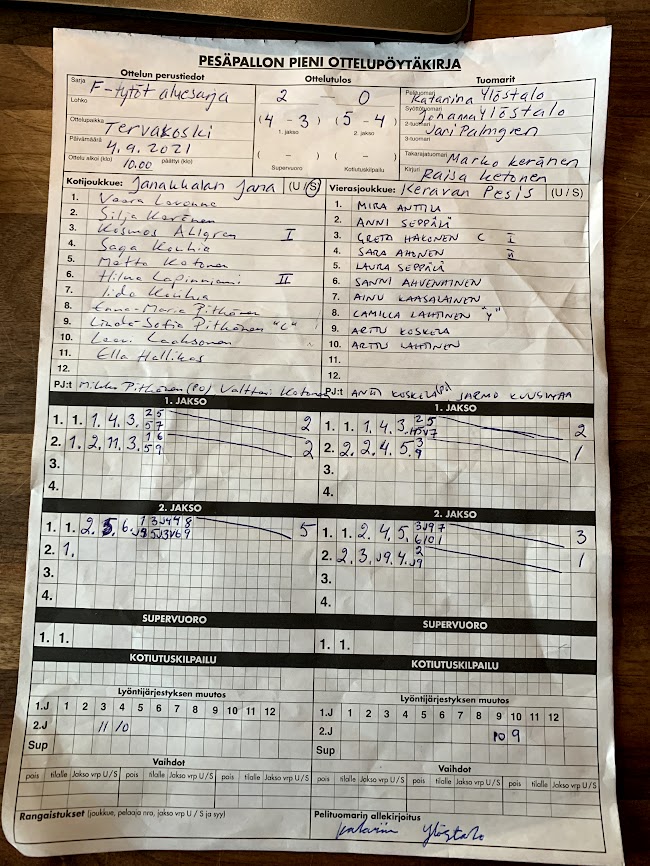 PESÄPALLON PIENI OTTELUPÖYTÄKIRJA
Ottelun perustiedot
Sarja F-tytöt aluesarja
Lohko
Ottelupaikka Tervakoski
Päivämäärä 4.9.2021
Ottelu alkoi (klo) 10.00 päättyi (klo)
Ottelutulos
2 - 0
(4 - 3) (5 - 4)
1. jakso 2. jakso
( - ) ( - )
Supervuoro Kotiutuskilpailu
Tuomarit
Pelituomari Katariina Ylöstalo
Syöttötuomari Johanna Ylöstalo
2-tuomari Jari Palmgren
3-tuomari
Takarajatuomari Marko Keränen
Kirjuri Raisa Ketonen
Kotijoukkue: Janakkalan Jana (U/S)
1. Veera
2. Silja Keränen
3. Kosmos Ahlgren I
4. Saga Kouhia
5. Matto Katonen
6. Hilma Lapinniemi II
7. Iida Kouhia
8. Enna-Maria Pitkänen
9. Linda-Sofia Pitkänen "C"
10. Leevi Laaksonen
11. Ella Hallikas
12.
PJ:t Mikko Pitkänen (PJ) Valtteri
Vierasjoukkue: Keravan Pesis (U/S)
1. MIRA ANTTILA
2. ANNI SEPPÄLÄ
3. GRETA HAKONEN C I
4. SARA AHONEN II
5. LAURA SEPPÄLÄ
6. SANNI AHVENAINEN
7. AINU KAASALAINEN
8. CAMILLA LAHTINEN "Y"
9. ARTTU KOSKELA
10. ARTTU LAHTINEN
11.
12.
PJ:t ANTTI KOSKELA JARMO
1. JAKSO
1. 1. 1. 4. 3. 2 5 2
5 7
2. 1. 2. 11. 3. 1 6 2
5 9
3.
4.
1. JAKSO
1. 1. 1. 4. 3. 2 5 2
2. 2. 2. 4. 5. 3 1
9
3.
4.
2. JAKSO
1. 1. 2. 5. 6. 5
2. 1.
3.
4.
2. JAKSO
1. 1. 2. 4. 5. 3
2. 2. 3. 4. 2 1
3.
4.
SUPERVUORO
1. 1.
SUPERVUORO
1. 1.
KOTIUTUSKILPAILU
KOTIUTUSKILPAILU
Lyöntijärjestyksen muutos
1.J 1 2 3 4 5 6 7 8 9 10 11 12
2.J 11 10
Sup
Lyöntijärjestyksen muutos
1.J 1 2 3 4 5 6 7 8 9 10 11 12
2.J 10 9
Sup
Vaihdot
pois tilalle Jakso vrp U/S pois tilalle Jakso vrp U/S pois tilalle Jakso vrp U/S
Vaihdot
pois tilalle Jakso vrp U/S pois tilalle Jakso vrp U/S pois tilalle Jakso vrp U/S
Rangaistukset (joukkue, pelaaja nro, jakso vrp U / S ja syy)
Pelituomarin allekirjoitus
Katariina Ylöstalo